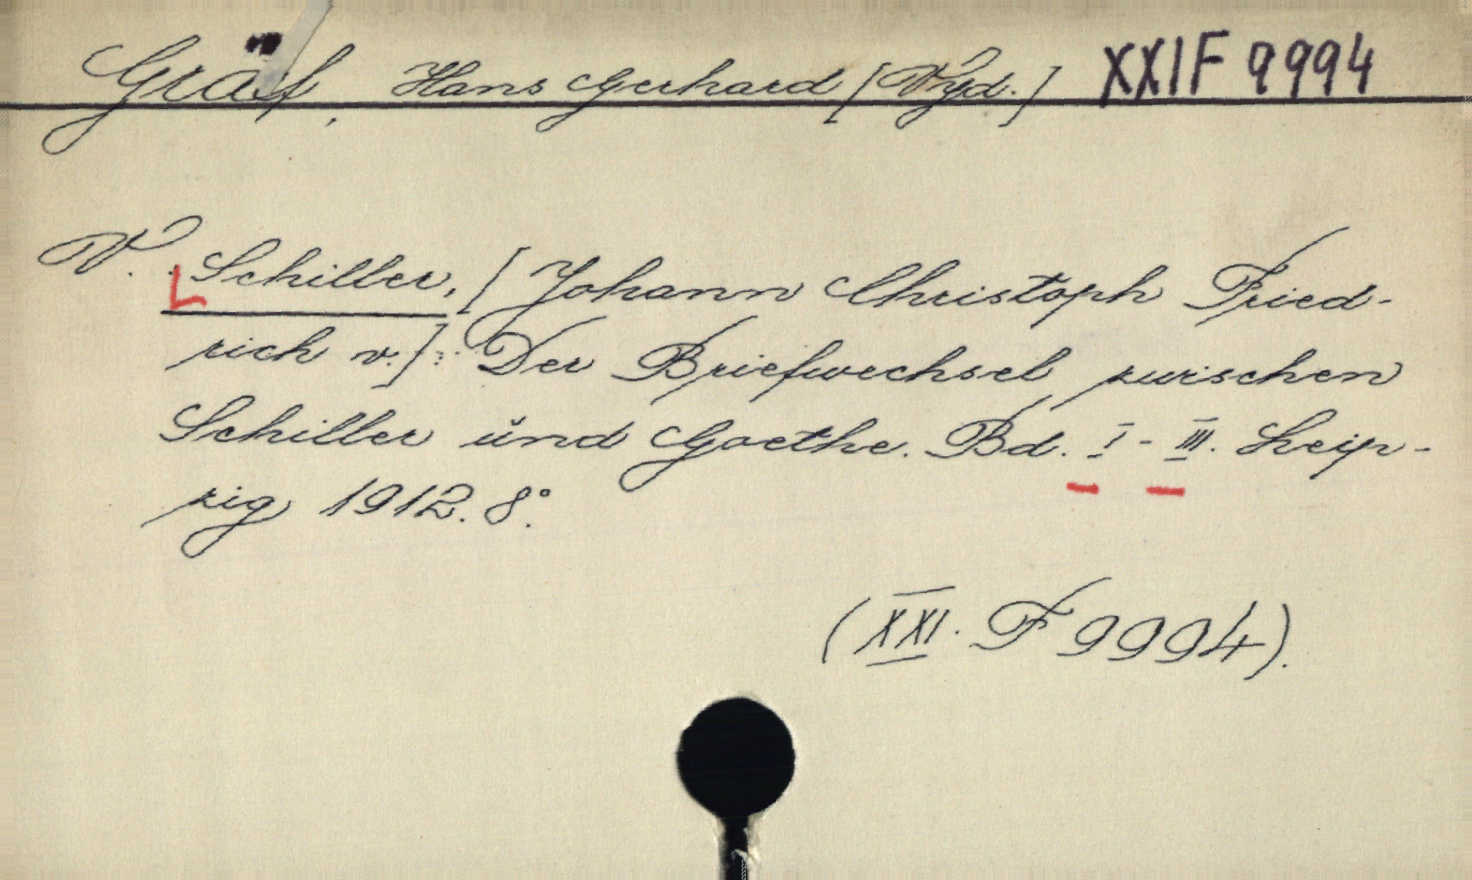 Gräf, Hans Gerhard [Vyd.] XXI F 9994
V. Schiller, [Johann Christoph Fried-
rich v.]: Der Briefwechsel zwischen
Schiller und Goethe. Bd. I - III. Leip-
zig 1912. 8°.
(XXI. F 9994).